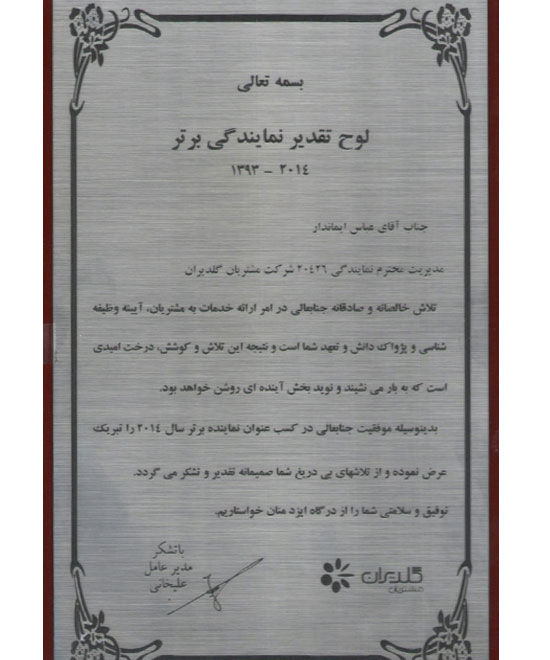 بسمه تعالی
لوح تقدیر نمایندگی برتر
۲۰۱٤ - ۱۳۹۳
جناب آقای عباس ایماندار
مدیریت محترم نمایندگی ۲۰٤۲٦ شرکت مشتریان گلدیران
تلاش خالصانه و صادقانه جنابعالی در امر ارائه خدمات به مشتریان، آیینه وظیفه
شناسی و پژواک دانش و تعهد شما است و نتیجه این تلاش و کوشش، درخت امیدی
است که به بار می نشیند و نوید بخش آینده ای روشن خواهد بود.
بدینوسیله موفقیت جنابعالی در کسب عنوان نماینده برتر سال ۲۰۱٤ را تبریک
عرض نموده و از تلاشهای بی دریغ شما صمیمانه تقدیر و تشکر می گردد.
توفیق و سلامتی شما را از درگاه ایزد منان خواستاریم.
باتشکر
مدیر عامل
علیخانی
گلدیران
مشتریان